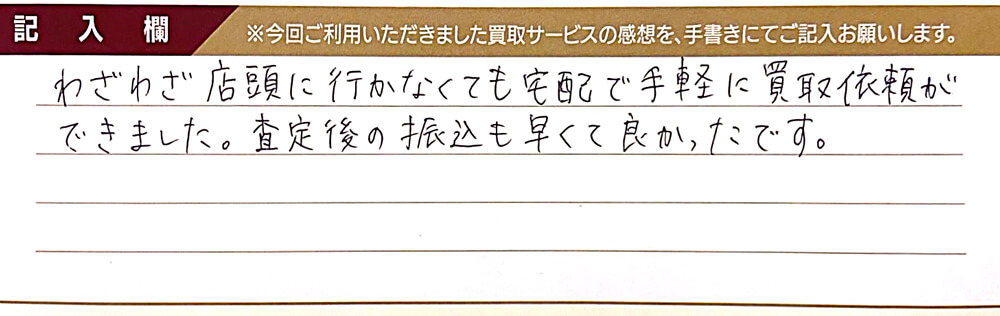 記入欄
※今回ご利用いただきました買取サービスの感想を、手書きにてご記入お願いします。
わざわざ店頭に行かなくても宅配で手軽に買取依頼が
できました。査定後の振込も早くて良かったです。